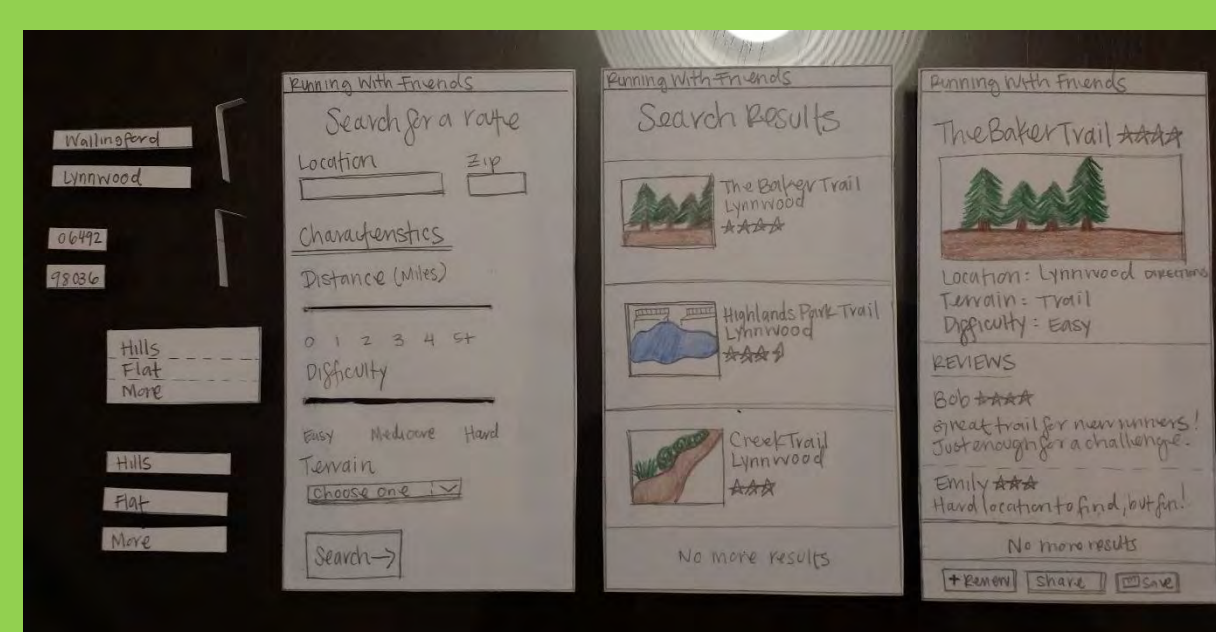 Wallingford
Lynnwood
06492
98036
Hills
Flat
More
Hills
Flat
More
Running With Friends
Search for a route
Location Zip
Characteristics
Distance (Miles)
0 1 2 3 4 5+
Difficulty
Easy Mediocre Hard
Terrain
Choose one
Search→
Running With Friends
Search Results
The Baker Trail
Lynnwood
Highlands Park Trail
Lynnwood
Creek Trail
Lynnwood
No more results
Running With Friends
The Baker Trail
Location: Lynnwood DIRECTIONS
Terrain: Trail
Difficulty: Easy
REVIEWS
Bob
Great trail for new runners!
Just enough for a challenge.
Emily
Hard location to find, but fun!
No more results
+ Review Share Save